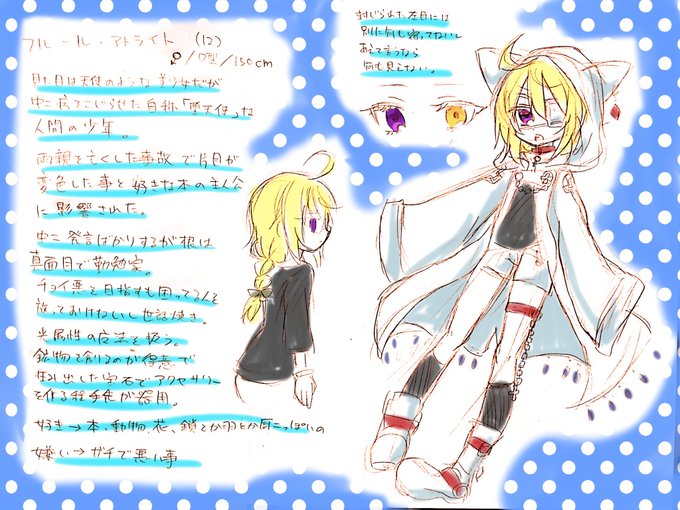 フルール・アトライト (12)
♂/O型/150cm
見た目は天使のような美少女だが
中二病をこじらせた自称「堕天使」な
人間の少年。
両親を亡くした事故で片目が
変色した事と好きな本の主人公
に影響された。
中二発言ばかりするが根は
真面目で勤勉家。
チョイ悪を目指すも困ってる人を
放っておけないし世話焼き。
光属性の魔法を扱う。
鉱物を創るのが得意で
生み出した宝石でアクセサリー
を作る程手先が器用。
好き→本、動物、花、鎖とか羽とか厨二っぽいの
嫌い→ガチで悪い事
封じられた左目には
別に何も宿ってないし
あえて言うなら
何も見えない。